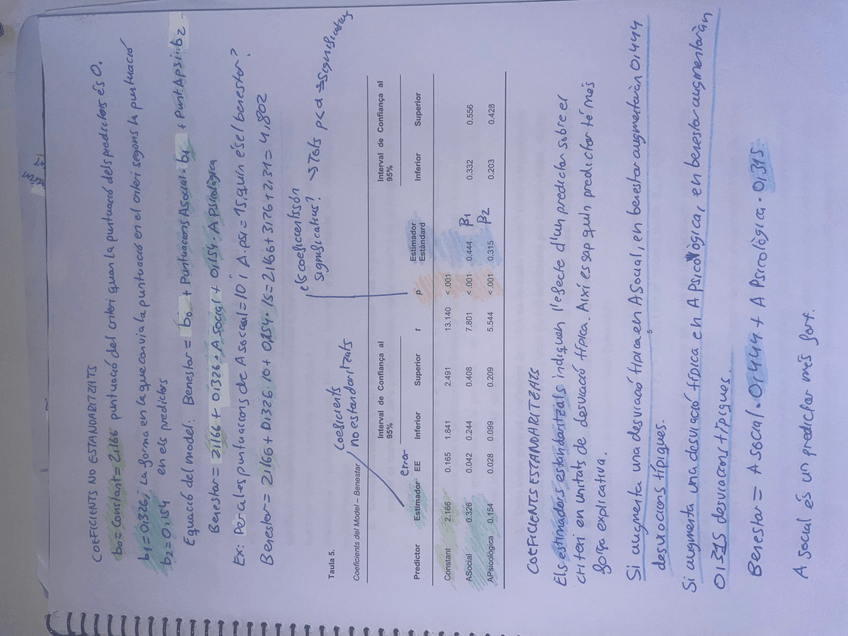 COEFICIENTS NO ESTANDARITZATS
b0 = constant = 2,166 puntuació del criteri quan la puntuació dels predictors és 0.
b1 = 0,326; La forma en la que canvia la puntuació en el criteri segons la puntuació
b2 = 0,154 en els predictors
Equació del model: Benestar = b0 + Puntuacions Asocial · b1 + Punt Apsi · b2
Benestar = 2,166 + 0,326 · A Social + 0,154 · A Psicològica
Ex: Per a les puntuacions de A social = 10 i A. psi = 15, quin és el benestar?
Benestar = 2,166 + 0,326 · 10 + 0,154 · 15 = 2,166 + 3,26 + 2,31 = 4,802
els coeficients són
significatius? → Tots p<α → significatius
Coeficients
no estandaritzats
Taula 5.
Coeficients del Model – Benestar
error
Interval de Confiança al 95%
Interval de Confiança al 95%
Predictor Estimador EE Inferior Superior t p Estimador Estàndard Inferior Superior
Constant 2.166 0.165 1.841 2.491 13.140 <.001
ASocial 0.326 0.042 0.244 0.408 7.801 <.001 0.444 β1 0.332 0.556
APsicològica 0.154 0.028 0.099 0.209 5.544 <.001 0.315 β2 0.203 0.428
COEFICIENTS ESTANDARITZATS
Els estimadors estandaritzats indiquen l'efecte d'un predictor sobre el
criteri en unitats de desviació típica. Així es sap quin predictor té més
força explicativa.
Si augmenta una desviació típica en A Social, en benestar augmentaràn 0,444
desviacions típiques.
Si augmenta una desviació típica en A Psicològica, en benestar augmentaràn
0,315 desviacions típiques.
Benestar = A social · 0,444 + A Psicològica · 0,315
A social és un predictor més fort.